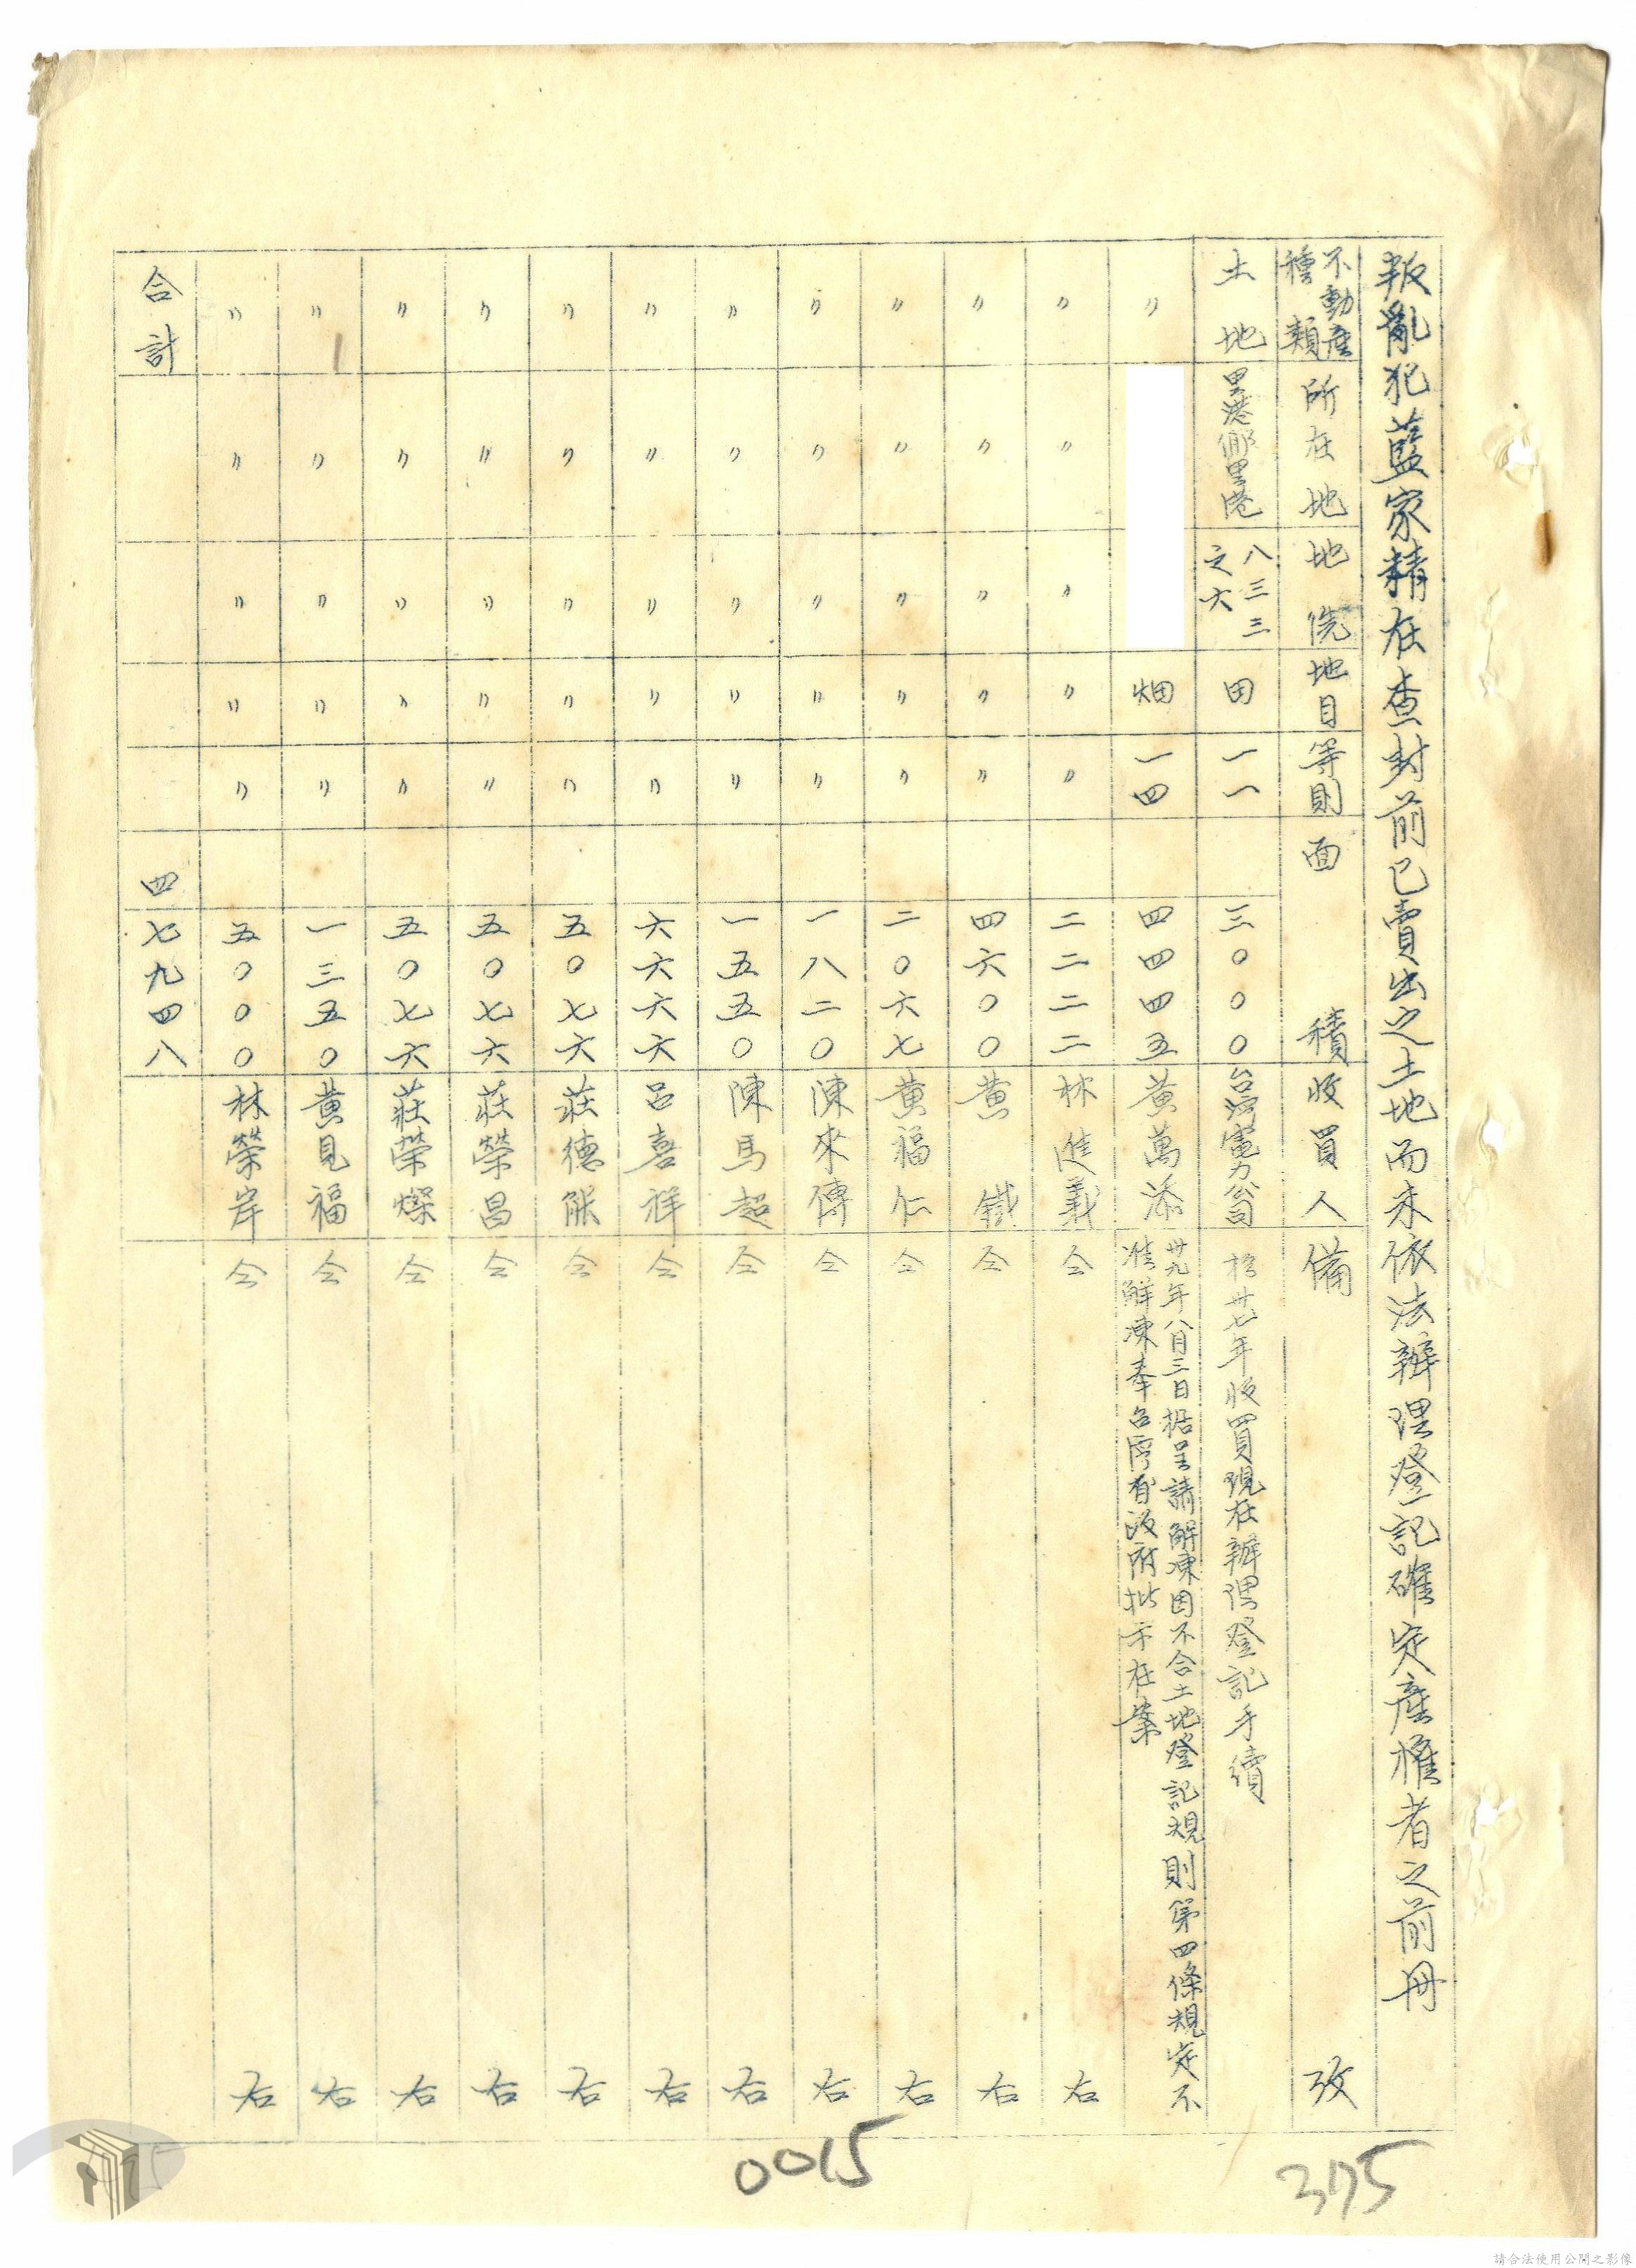 叛亂犯藍家精在查封前已賣出之土地而未依法辦理登記確定產權者之前冊
不動產種類 所在地 地 地目 等則 面積 收買人 備攷
土地 里港鄉里港 八三三之六 田 一一 三〇〇〇 台灣電力公司 於卅七年收買現在辦理登記手續
〃 畑 一四 四四四五 黃萬添 卅九年八月三日据呈請解凍因不合土地登記規則第四條規定不准解凍奉台灣省政府批示在案
〃 〃 〃 〃 〃 二二二二 林進義 仝右
〃 〃 〃 〃 〃 四六〇〇 黃鐵 仝右
〃 〃 〃 〃 〃 二〇六七 黃福仁 仝右
〃 〃 〃 〃 〃 一八二〇 陳來傳 仝右
〃 〃 〃 〃 〃 一五五〇 陳馬超 仝右
〃 〃 〃 〃 〃 六六六六 呂喜祥 仝右
〃 〃 〃 〃 〃 五〇七六 莊德能 仝右
〃 〃 〃 〃 〃 五〇七六 莊榮昌 仝右
〃 〃 〃 〃 〃 五〇七六 莊榮燦 仝右
〃 〃 〃 〃 〃 一三五〇 黃見福 仝右
〃 〃 〃 〃 〃 五〇〇〇 林榮岸 仝右
合計 四七九四八
0015
375
請合法使用公開之影像